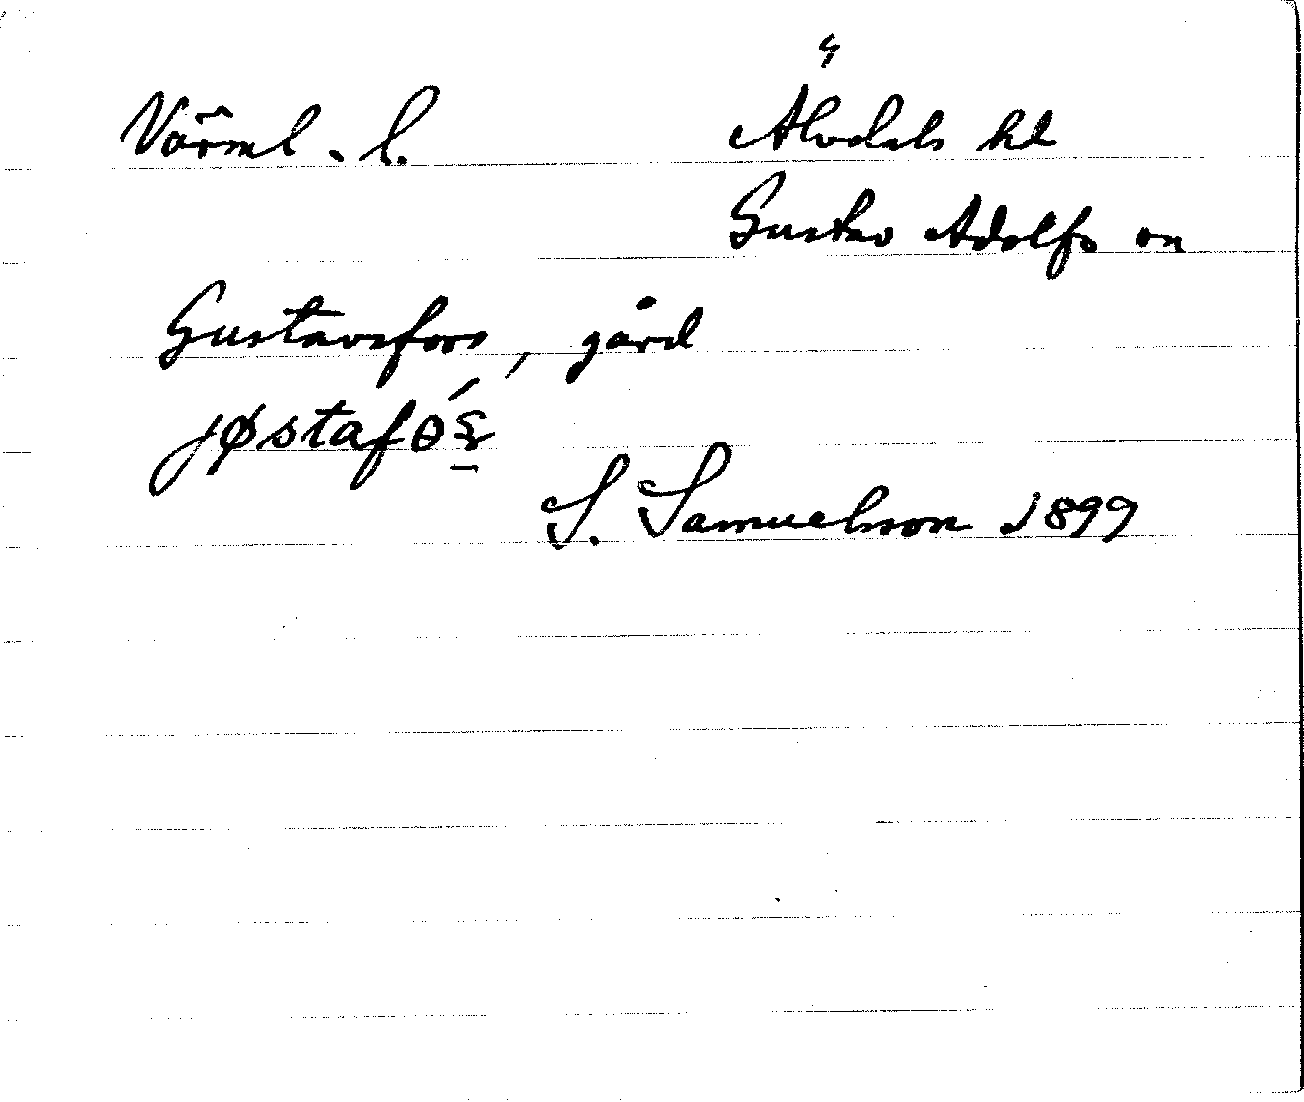 Värml. l. Älvdals hd
Gustav Adolfs sn
Gustavsfors, gård
jøstafθ́ꞩ
S. Samuelsson 1899